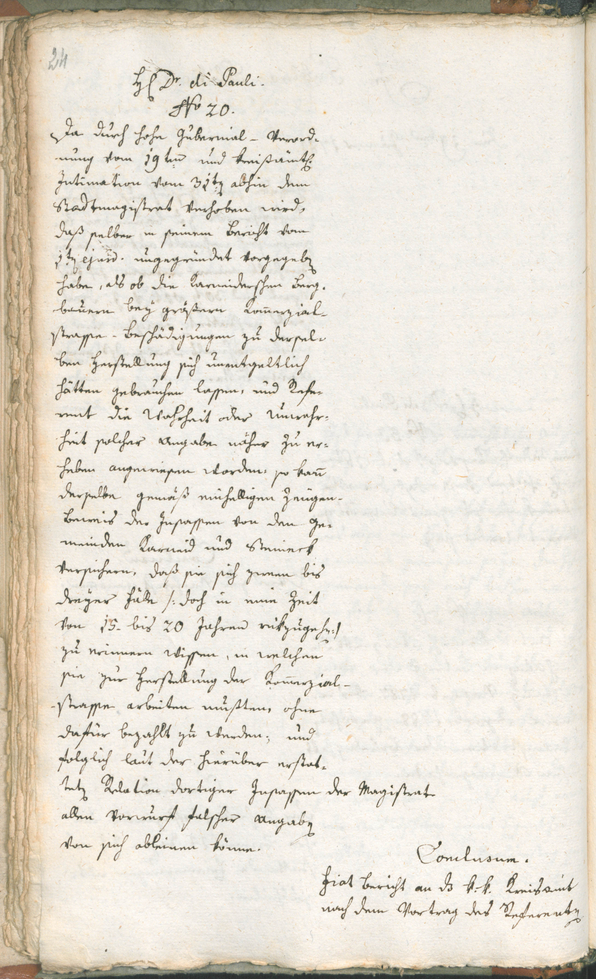 24
H. Dr. di Pauli.
No 20.
Da durch hohe Gubernial-Verord-
nung vom 19ten und kreisämtl.
Intimation vom 31ten abhin dem
Stadtmagistrat verhoben wird,
daß selber in seinem Bericht vom
ejusd. ungegründet vorgegeben
habe, als ob die Karneiderschen Berg-
bauern bey größern Kommerzial-
strasse-Beschädigungen zu dersel-
ben Herstellung sich unentgeltlich
hätten gebrauchen lassen, und Refe-
rent die Wahrheit oder Unwahr-
heit solcher Angabe näher zu er-
heben angewiesen worden, so kann
derselbe gemäß einhelligen Zeugen-
beweis der Insassen von den Ge-
meinden Karneid und Steineck
versichern, daß sie sich zween bis
dreyer Fälle /: doch in eine Zeit
von 15. bis 20 Jahren rükzugehn :/
zu erinnern wissen, in welchen
sie zur Herstellung der Kommerzial-
strasse arbeiten mußten, ohne
dafür bezahlt zu werden; und
folglich laut der hierüber erstat-
teten Relation dortiger Insassen der Magistrat
allen Vorwurf falscher Angaben
von sich ableinen könne.
Conclusum.
Fiat Bericht an das k. k. Kreisamt
nach dem Vortrag des Referenten